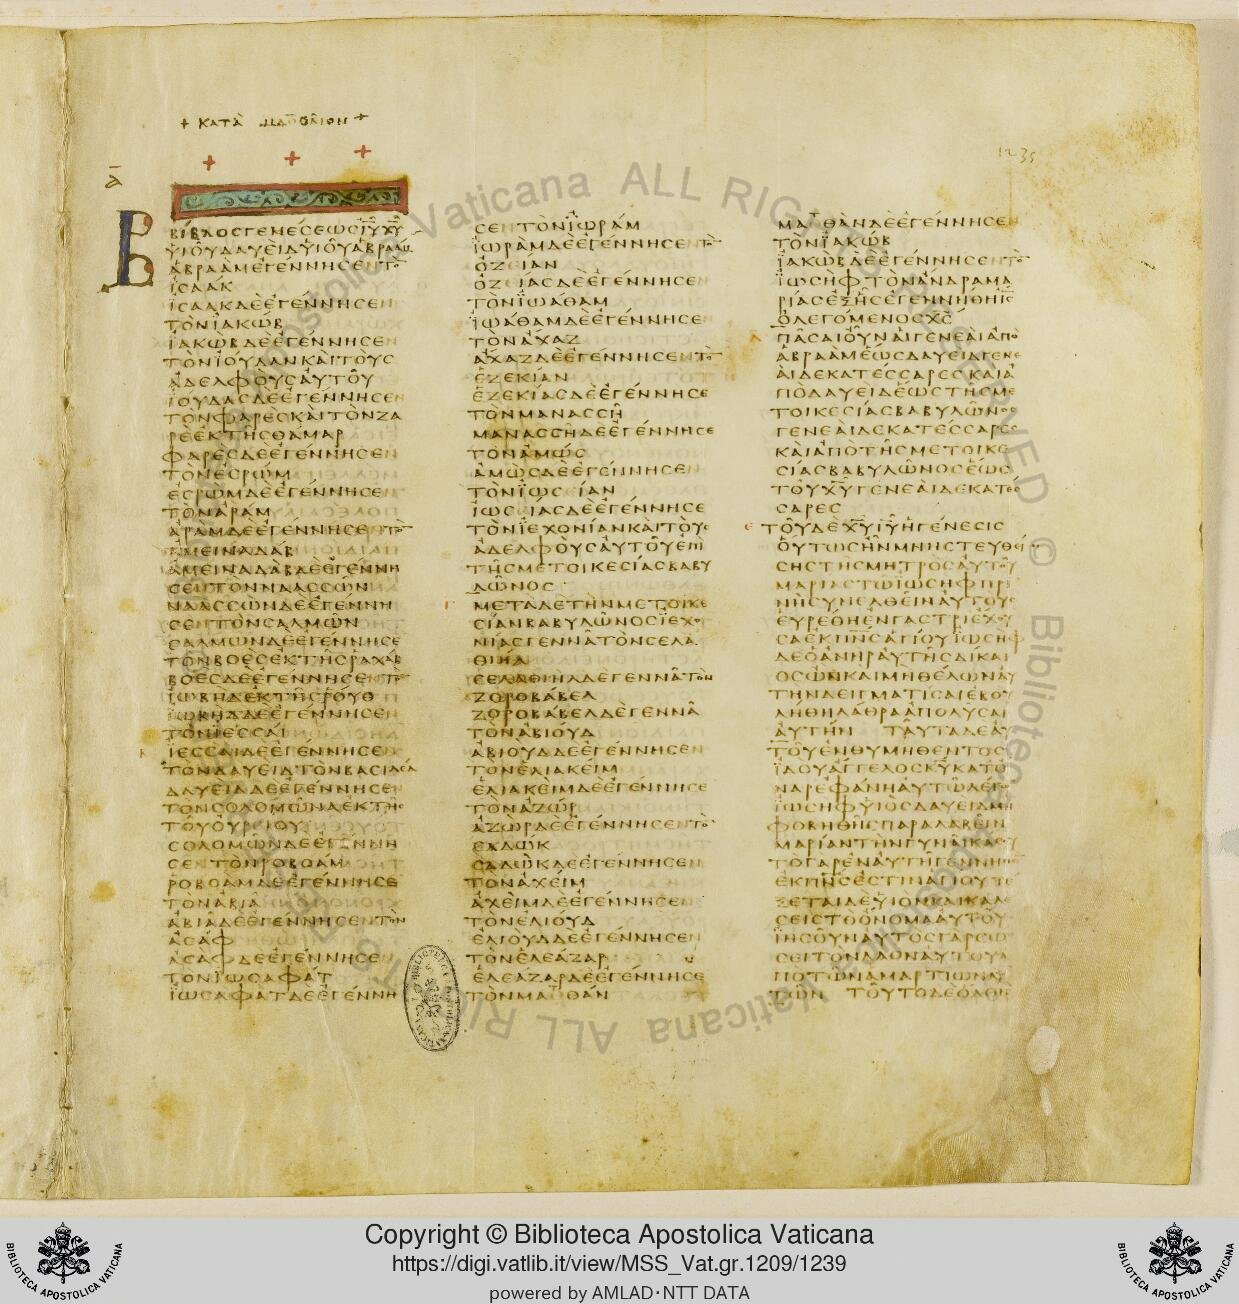 + ΚΑΤᾺ ΜΑΘΘΑῖΟΝ +
1235
Α
ΒΙΒΛΟΣΓΕΝΕΣΕΩΣΙΥΧΥ
ΥΙΟΥΔΑΥΕΙΔΥΙΟΥΑΒΡΑΑΜ
ΑΒΡΑΑΜΕΓΕΝΝΗΣΕΝΤΟ
ΙΣΑΑΚ
ΙΣΑΑΚΔΕΕΓΕΝΝΗΣΕΝ
ΤΟΝΙΑΚΩΒ
ΙΑΚΩΒΔΕΕΓΕΝΝΗΣΕΝ
ΤΟΝΙΟΥΔΑΝΚΑΙΤΟΥΣ
ΑΔΕΛΦΟΥΣΑΥΤΟΥ
ΙΟΥΔΑΣΔΕΕΓΕΝΝΗΣΕΝ
ΤΟΝΦΑΡΕΣΚΑΙΤΟΝΖΑ
ΡΕΕΚΤΗΣΘΑΜΑΡ
ΦΑΡΕΣΔΕΕΓΕΝΝΗΣΕΝ
ΤΟΝΕΣΡΩΜ
ΕΣΡΩΜΔΕΕΓΕΝΝΗΣΕΝ
ΤΟΝΑΡΑΜ
ΑΡΑΜΔΕΕΓΕΝΝΗΣΕΝΤΟ
ΑΜΕΙΝΑΔΑΒ
ΑΜΕΙΝΑΔΑΒΔΕΕΓΕΝΝΗ
ΣΕΝΤΟΝΝΑΑΣΣΩΝ
ΝΑΑΣΣΩΝΔΕΕΓΕΝΝΗ
ΣΕΝΤΟΝΣΑΛΜΩΝ
ΣΑΛΜΩΝΔΕΕΓΕΝΝΗΣΕ
ΤΟΝΒΟΕΣΕΚΤΗΣΡΑΧΑΒ
ΒΟΕΣΔΕΕΓΕΝΝΗΣΕΝΤΟ
ΙΩΒΗΔΕΚΤΗΣΡΟΥΘ
ΙΩΒΗΔΔΕΕΓΕΝΝΗΣΕΝ
ΤΟΝΙΕΣΣΑΙ
ΙΕΣΣΑΙΔΕΕΓΕΝΝΗΣΕΝ
ΤΟΝΔΑΥΕΙΔΤΟΝΒΑΣΙΛΕΑ
ΔΑΥΕΙΔΔΕΕΓΕΝΝΗΣΕΝ
ΤΟΝΣΟΛΟΜΩΝΑΕΚΤΗΣ
ΤΟΥΟΥΡΙΟΥ
ΣΟΛΟΜΩΝΔΕΕΓΕΝΝΗ
ΣΕΝΤΟΝΡΟΒΟΑΜ
ΡΟΒΟΑΜΔΕΕΓΕΝΝΗΣΕ
ΤΟΝΑΒΙΑ
ΑΒΙΑΔΕΕΓΕΝΝΗΣΕΝΤΟΝ
ΑΣΑΦ
ΑΣΑΦΔΕΕΓΕΝΝΗΣΕΝ
ΤΟΝΙΩΣΑΦΑΤ
ΙΩΣΑΦΑΤΔΕΕΓΕΝΝΗ
ΣΕΝΤΟΝΙΩΡΑΜ
ΙΩΡΑΜΔΕΕΓΕΝΝΗΣΕΝΤΟ
ΟΖΕΙΑΝ
ΟΖΕΙΑΣΔΕΕΓΕΝΝΗΣΕΝ
ΤΟΝΙΩΑΘΑΜ
ΙΩΑΘΑΜΔΕΕΓΕΝΝΗΣΕ
ΤΟΝΑΧΑΖ
ΑΧΑΖΔΕΕΓΕΝΝΗΣΕΝΤΟ
ΕΖΕΚΙΑΝ
ΕΖΕΚΙΑΣΔΕΕΓΕΝΝΗΣΕ
ΤΟΝΜΑΝΑΣΣΗ
ΜΑΝΑΣΣΗΔΕΕΓΕΝΝΗΣΕ
ΤΟΝΑΜΩΣ
ΑΜΩΣΔΕΕΓΕΝΝΗΣΕΝ
ΤΟΝΙΩΣΕΙΑΝ
ΙΩΣΕΙΑΣΔΕΕΓΕΝΝΗΣΕ
ΤΟΝΙΕΧΟΝΙΑΝΚΑΙΤΟΥΣ
ΑΔΕΛΦΟΥΣΑΥΤΟΥΕΠΙ
ΤΗΣΜΕΤΟΙΚΕΣΙΑΣΒΑΒΥ
ΛΩΝΟΣ
ΜΕΤΑΔΕΤΗΝΜΕΤΟΙΚΕ
ΣΙΑΝΒΑΒΥΛΩΝΟΣΙΕΧΟ
ΝΙΑΣΓΕΝΝΑΤΟΝΣΕΛΑ
ΘΙΗΛ
ΣΕΛΑΘΙΗΛΔΕΓΕΝΝΑΤΟΝ
ΖΟΡΟΒΑΒΕΛ
ΖΟΡΟΒΑΒΕΛΔΕΓΕΝΝΑ
ΤΟΝΑΒΙΟΥΔ
ΑΒΙΟΥΔΔΕΕΓΕΝΝΗΣΕΝ
ΤΟΝΕΛΙΑΚΕΙΜ
ΕΛΙΑΚΕΙΜΔΕΕΓΕΝΝΗΣΕ
ΤΟΝΑΖΩΡ
ΑΖΩΡΔΕΕΓΕΝΝΗΣΕΝΤΟ
ΣΑΔΩΚ
ΣΑΔΩΚΔΕΕΓΕΝΝΗΣΕΝ
ΤΟΝΑΧΕΙΜ
ΑΧΕΙΜΔΕΕΓΕΝΝΗΣΕΝ
ΤΟΝΕΛΙΟΥΔ
ΕΛΙΟΥΔΔΕΕΓΕΝΝΗΣΕΝ
ΤΟΝΕΛΕΑΖΑΡ
ΕΛΕΑΖΑΡΔΕΕΓΕΝΝΗΣΕ
ΤΟΝΜΑΤΘΑΝ
ΜΑΤΘΑΝΔΕΕΓΕΝΝΗΣΕΝ
ΤΟΝΙΑΚΩΒ
ΙΑΚΩΒΔΕΕΓΕΝΝΗΣΕΝΤΟ
ΙΩΣΗΦΤΟΝΑΝΔΡΑΜΑ
ΡΙΑΣΕΞΗΣΕΓΕΝΝΗΘΗΙΣ
ΟΛΕΓΟΜΕΝΟΣΧΣ
ΠΑΣΑΙΟΥΝΑΙΓΕΝΕΑΙΑΠΟ
ΑΒΡΑΑΜΕΩΣΔΑΥΕΙΔΓΕΝΕ
ΑΙΔΕΚΑΤΕΣΣΑΡΕΣΚΑΙΑ
ΠΟΔΑΥΕΙΔΕΩΣΤΗΣΜΕ
ΤΟΙΚΕΣΙΑΣΒΑΒΥΛΩΝΟΣ
ΓΕΝΕΑΙΔΕΚΑΤΕΣΣΑΡΕΣ
ΚΑΙΑΠΟΤΗΣΜΕΤΟΙΚΕ
ΣΙΑΣΒΑΒΥΛΩΝΟΣΕΩΣ
ΤΟΥΧΥΓΕΝΕΑΙΔΕΚΑΤΕΣ
ΣΑΡΕΣ
ΤΟΥΔΕΧΥΙΥΗΓΕΝΕΣΙΣ
ΟΥΤΩΣΗΝΜΝΗΣΤΕΥΘΕΙ
ΣΗΣΤΗΣΜΗΤΡΟΣΑΥΤΟΥ
ΜΑΡΙΑΣΤΩΙΩΣΗΦΠΡΙ
ΝΗΣΥΝΕΛΘΕΙΝΑΥΤΟΥΣ
ΕΥΡΕΘΗΕΝΓΑΣΤΡΙΕΧΟΥ
ΣΑΕΚΠΝΣΑΓΙΟΥΙΩΣΗΦ
ΔΕΟΑΝΗΡΑΥΤΗΣΔΙΚΑΙ
ΟΣΩΝΚΑΙΜΗΘΕΛΩΝΑΥ
ΤΗΝΔΕΙΓΜΑΤΙΣΑΙΕΒΟΥ
ΛΗΘΗΛΑΘΡΑΑΠΟΛΥΣΑΙ
ΑΥΤΗΝ ΤΑΥΤΑΔΕΑΥ
ΤΟΥΕΝΘΥΜΗΘΕΝΤΟΣ
ΙΔΟΥΑΓΓΕΛΟΣΚΥΚΑΤΟ
ΝΑΡΕΦΑΝΗΑΥΤΩΛΕΓΩ
ΙΩΣΗΦΥΙΟΣΔΑΥΕΙΔΜΗ
ΦΟΒΗΘΗΣΠΑΡΑΛΑΒΕΙΝ
ΜΑΡΙΑΝΤΗΝΓΥΝΑΙΚΑΣΟΥ
ΤΟΓΑΡΕΝΑΥΤΗΓΕΝΝΗΘΕ
ΕΚΠΝΣΕΣΤΙΝΑΓΙΟΥΤΕ
ΞΕΤΑΙΔΕΥΙΟΝΚΑΙΚΑΛΕ
ΣΕΙΣΤΟΟΝΟΜΑΑΥΤΟΥ
ΙΗΣΟΥΝΑΥΤΟΣΓΑΡΣΩ
ΣΕΙΤΟΝΛΑΟΝΑΥΤΟΥΑ
ΠΟΤΩΝΑΜΑΡΤΙΩΝΑΥ
ΤΩΝ ΤΟΥΤΟΔΕΟΛΟΝ
Copyright © Biblioteca Apostolica Vaticana
https://digi.vatlib.it/view/MSS_Vat.gr.1209/1239
powered by AMLAD·NTT DATA